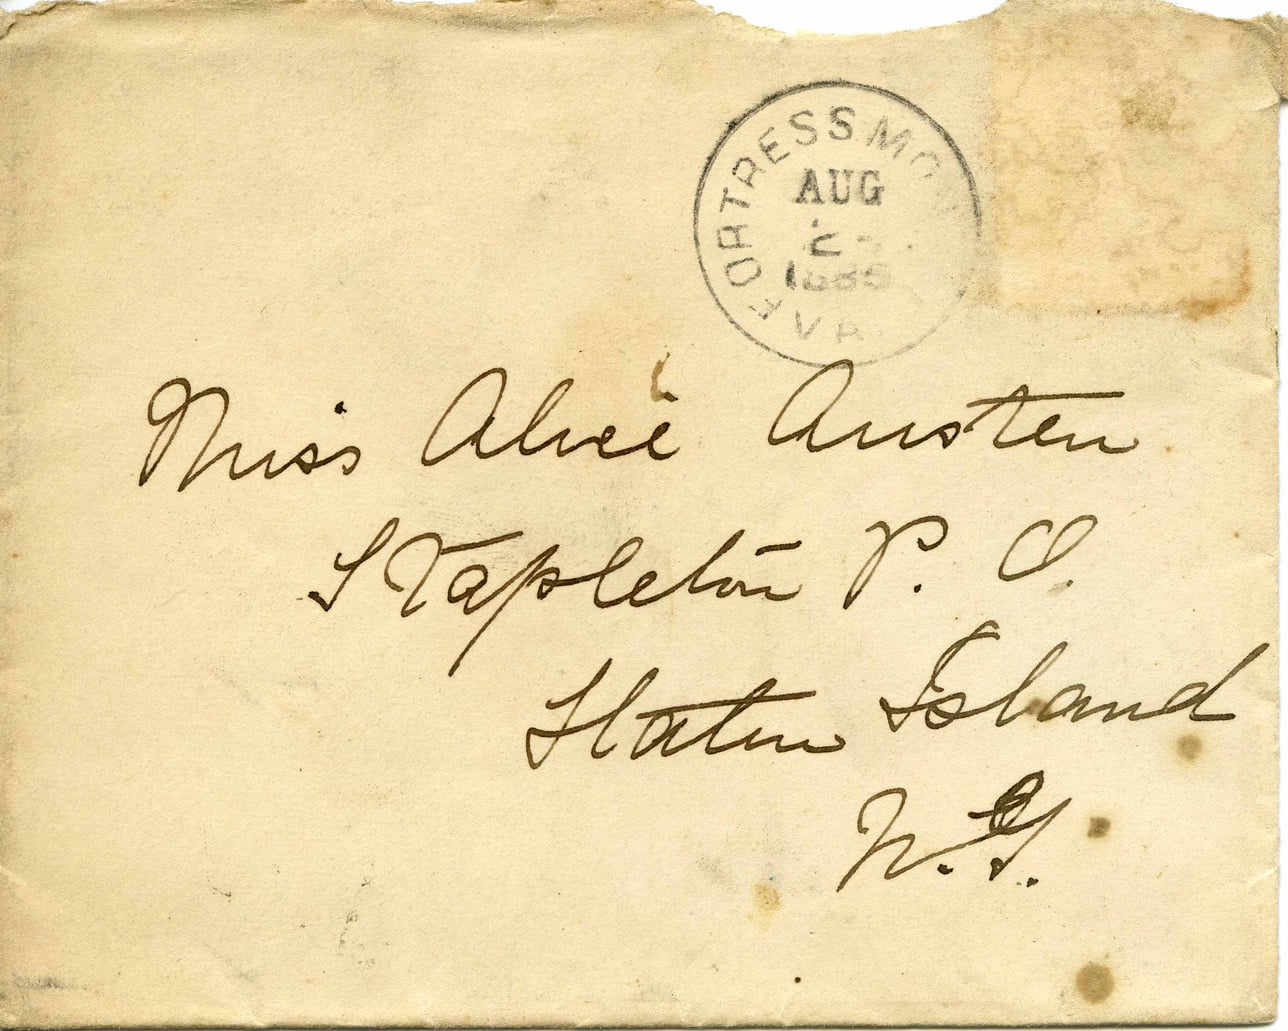 FORTRESS MO
AUG
VA
Miss Alice Austen
Stapleton P. O.
Staten Island
N.Y.